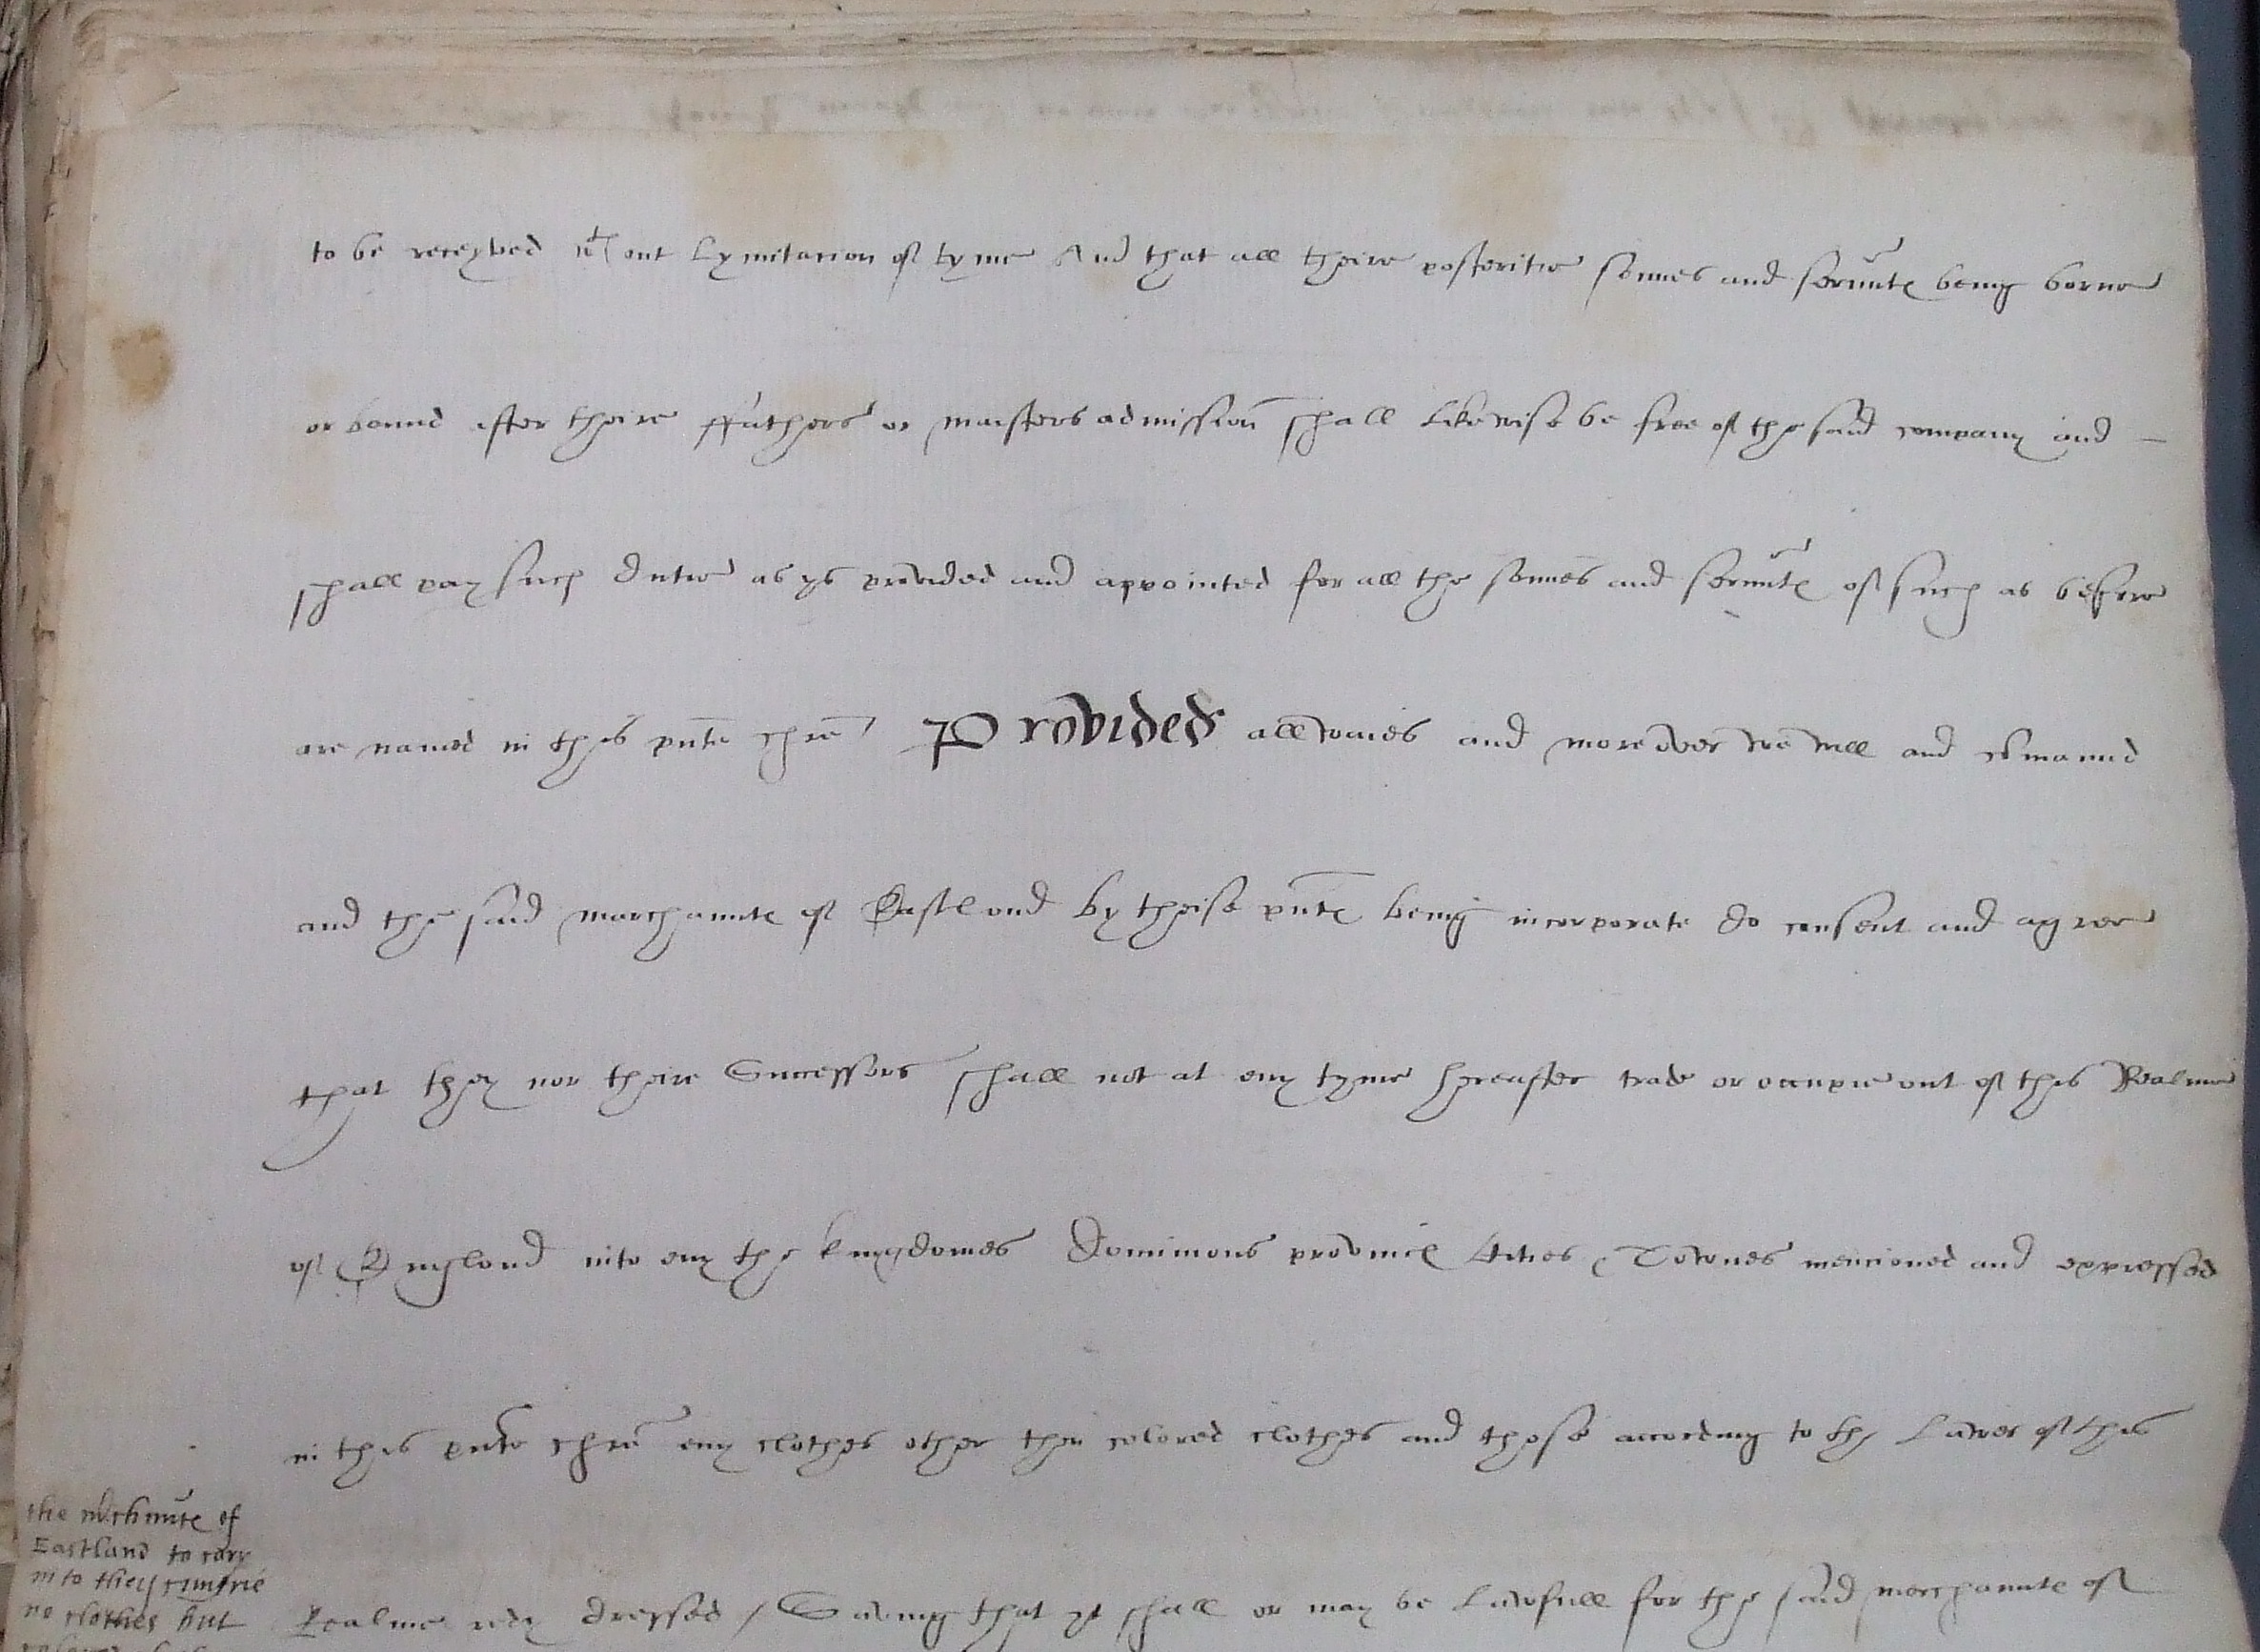 to be receyved wth out Lymitacion of tyme And that all theire posteritie sonnes and servuntes being borne
or bound after theire ffathers or maisters admission shall likewise be free of the said company and –
shall pay such dutie as ys provided and appointed for all the sonnes and servuntes of such as before
are named in this pnte chre Provided allwaies and moreover we will and comaund
and the said marchauntes of Eastlond by theise pntes being incorporate do consent and agree
that they nor theire Successors shall not at eny tyme hereafter trade or occupie out of this Realme
of Englond into eny the kingdomes Dominions provinces Cities & Townes mencioned and expressed
in this pnte chre eny clothes other then colored clothes and those according to the Lawes of this
Realme redy dressed / Saving that yt shall or may be Lawfull for the said merchauntes of
the mrchuntes of
Eastland to cary
into they cuntrie
no clothes but